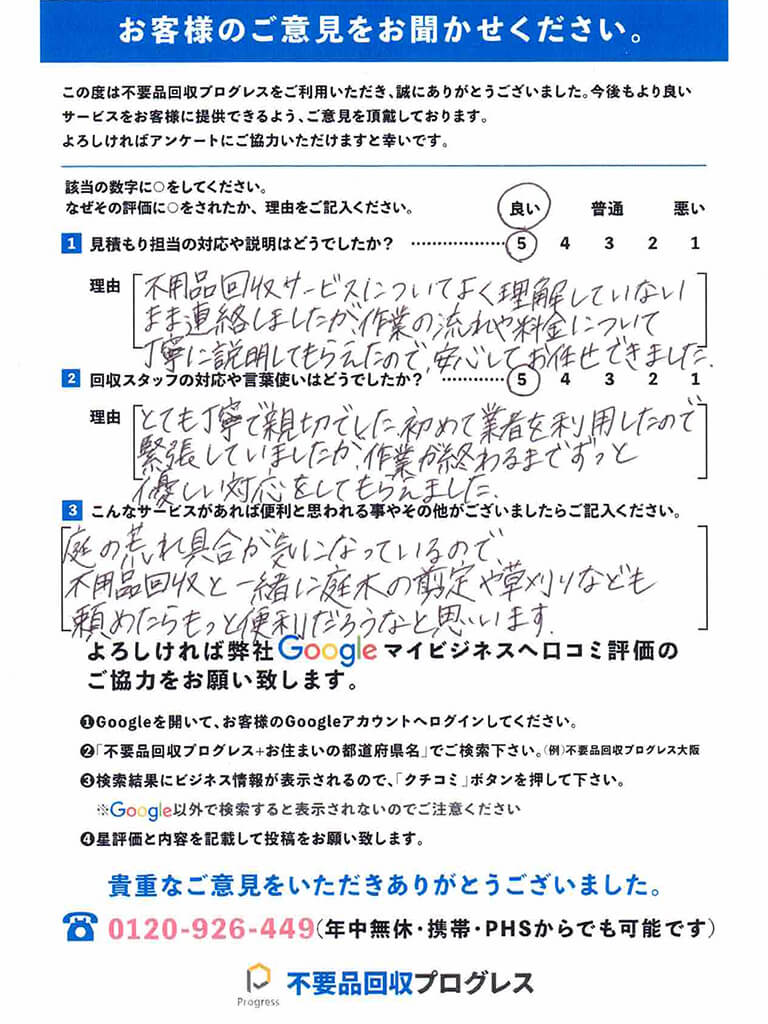 お客様のご意見をお聞かせください。
この度は不要品回収プログレスをご利用いただき、誠にありがとうございました。今後もより良い
サービスをお客様に提供できるよう、ご意見を頂戴しております。
よろしければアンケートにご協力いただけますと幸いです。
該当の数字に○をしてください。
なぜその評価に○をされたか、理由をご記入ください。 良い 普通 悪い
1 見積もり担当の対応や説明はどうでしたか? ・・・・・・・・・・・・・・・ 5 4 3 2 1
理由 不用品回収サービスについてよく理解していない
まま連絡しましたが、作業の流れや料金について
丁寧に説明してもらえたので、安心してお任せできました.
2 回収スタッフの対応や言葉使いはどうでしたか? ・・・・・・・・・・ 5 4 3 2 1
理由 とても丁寧で親切でした.初めて業者を利用したので
緊張していましたが、作業が終わるまでずっと
優しい対応をしてもらえました.
3 こんなサービスがあれば便利と思われる事やその他がございましたらご記入ください。
庭の荒れ具合が気になっているので
不用品回収と一緒に庭木の剪定や草刈りなども
頼めたらもっと便利だろうなと思います.
よろしければ弊社Googleマイビジネスへ口コミ評価の
ご協力をお願い致します。
❶Googleを開いて、お客様のGoogleアカウントへログインしてください。
❷「不要品回収プログレス+お住まいの都道府県名」でご検索下さい。(例)不要品回収プログレス大阪
❸検索結果にビジネス情報が表示されるので、「クチコミ」ボタンを押して下さい。
※Google以外で検索すると表示されないのでご注意ください
❹星評価と内容を記載して投稿をお願い致します。
貴重なご意見をいただきありがとうございました。
0120-926-449(年中無休・携帯・PHSからでも可能です)
Progress 不要品回収プログレス